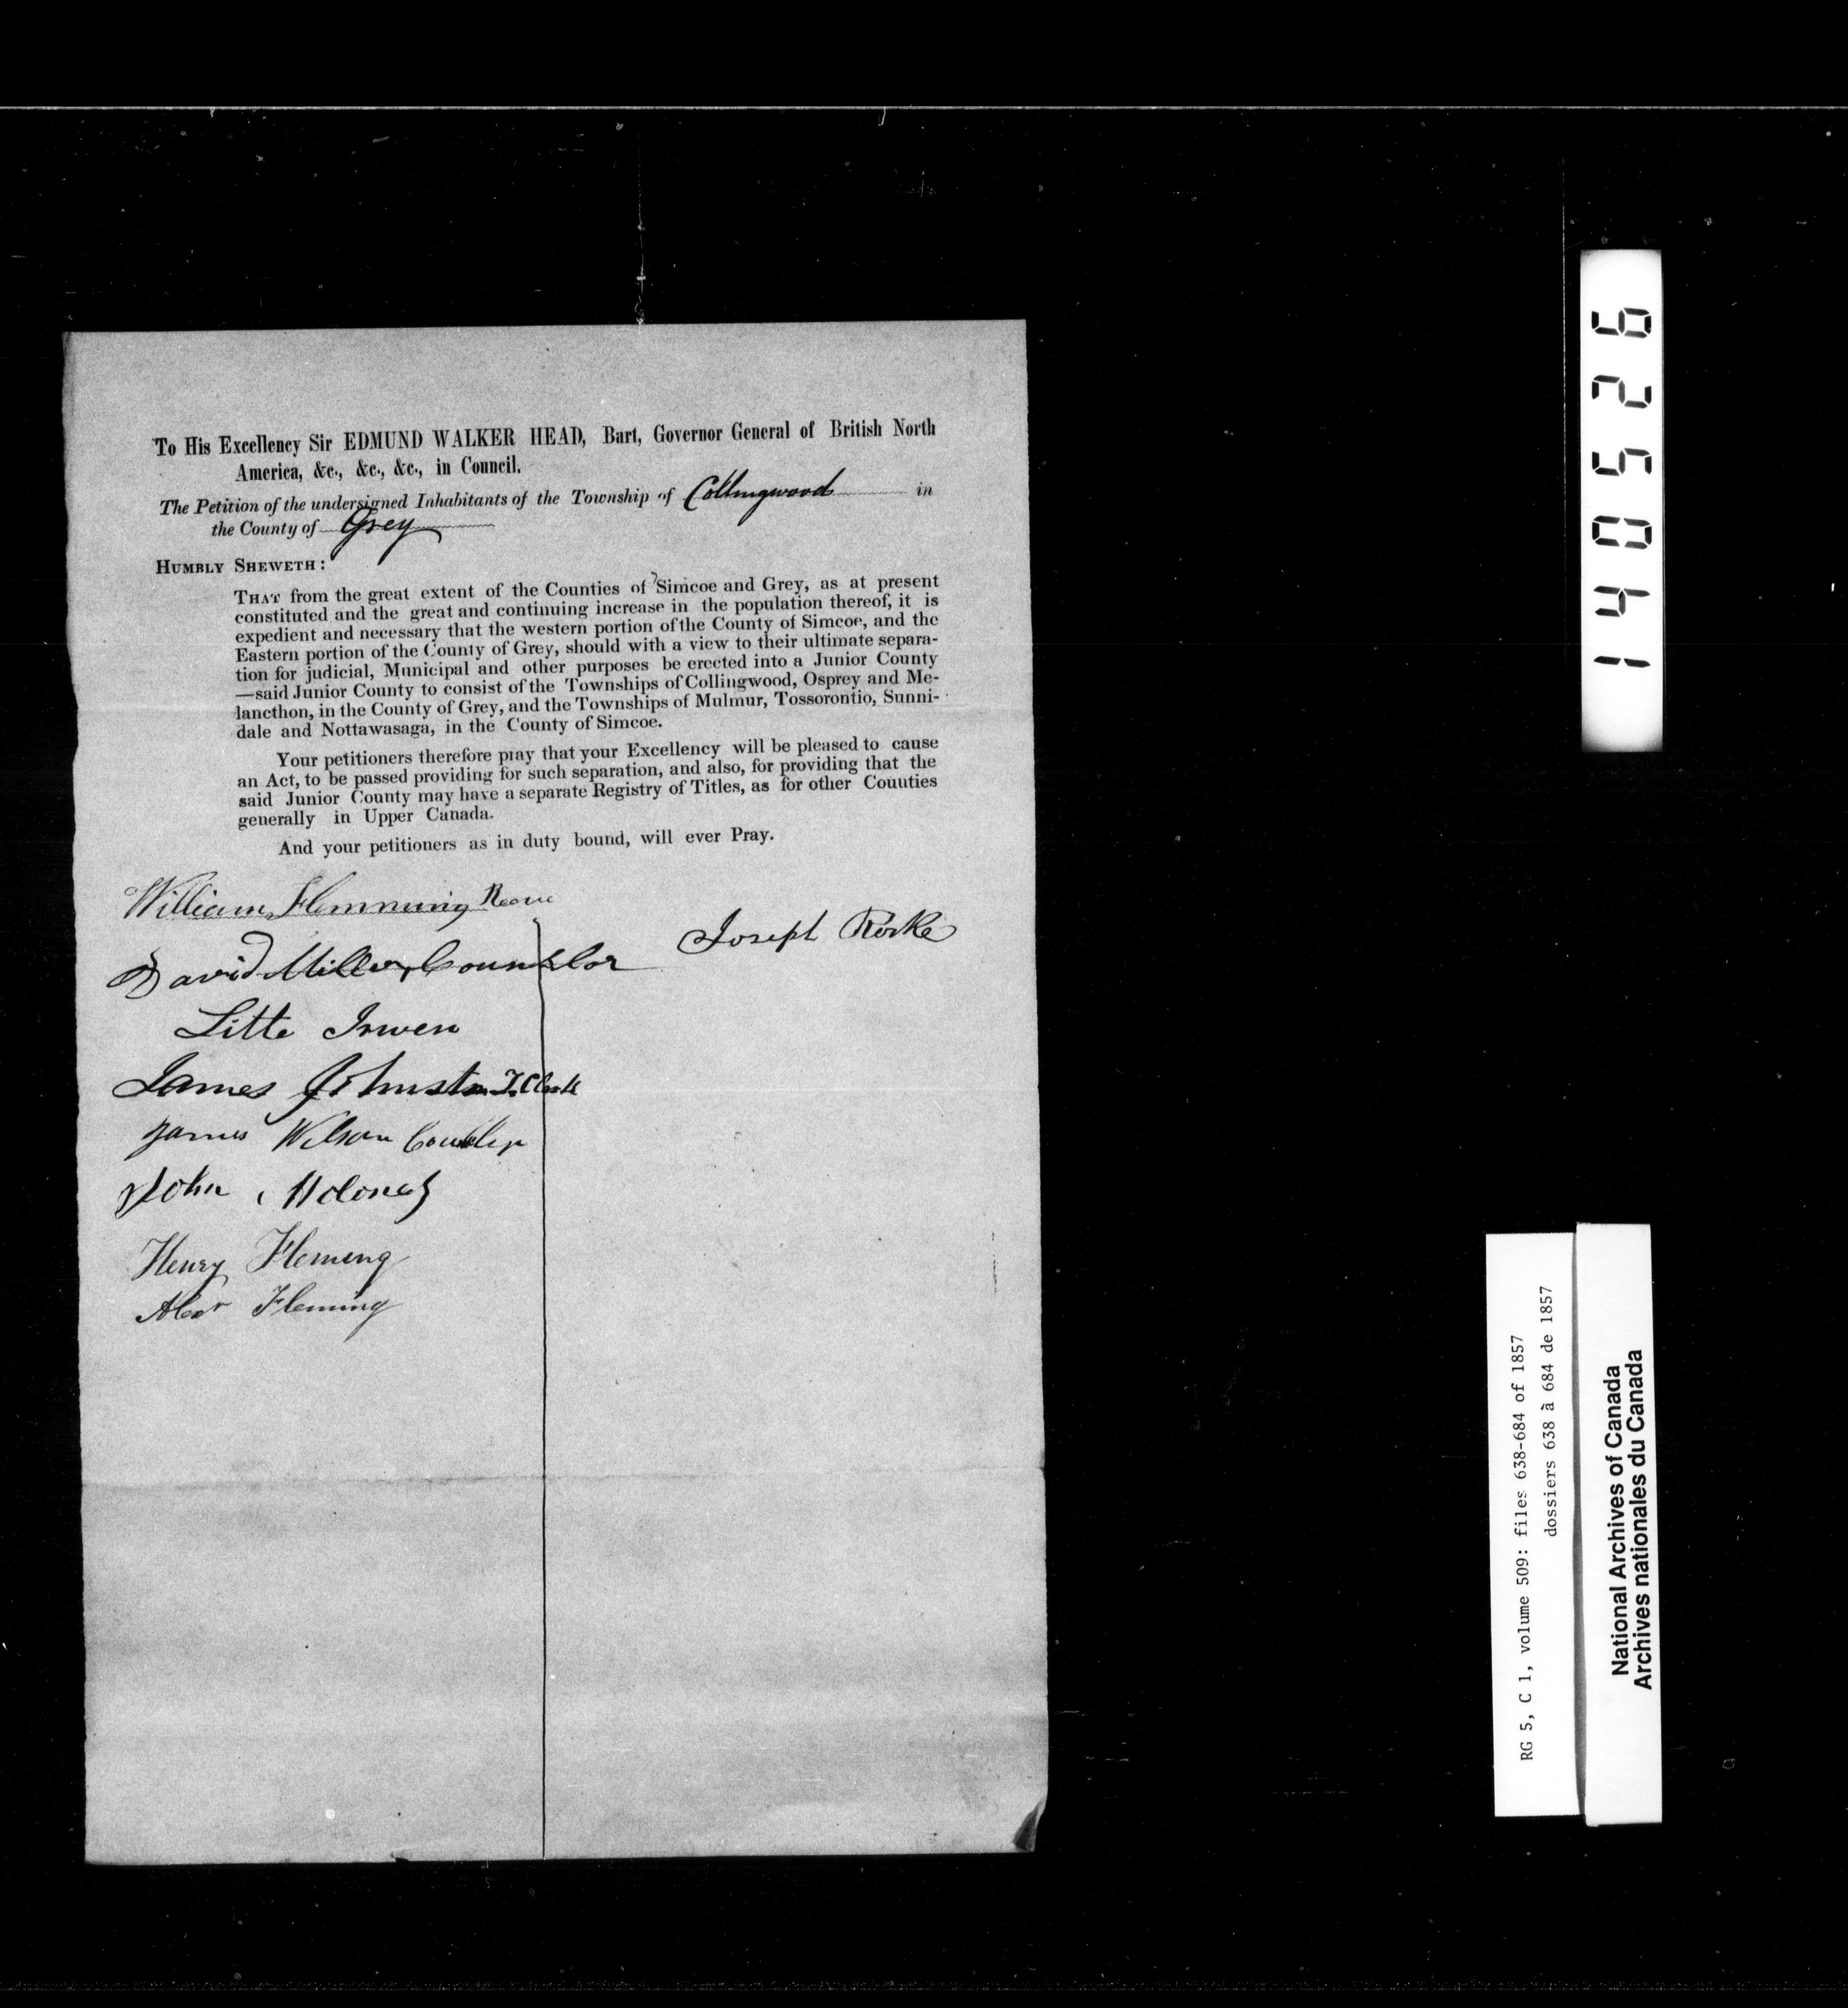 To His Excellency Sir EDMUND WALKER HEAD, Bart, Governor General of British North
America, &c., &c., &c., in Council.
The Petition of the undersigned Inhabitants of the Township of Collingwood in
the County of Grey
HUMBLY SHEWETH:
THAT from the great extent of the Counties of Simcoe and Grey, as at present
constituted and the great and continuing increase in the population thereof, it is
expedient and necessary that the western portion of the County of Simcoe, and the
Eastern portion of the County of Grey, should with a view to their ultimate separa-
tion for judicial, Municipal and other purposes be erected into a Junior County
—said Junior County to consist of the Townships of Collingwood, Osprey and Me-
lancthon, in the County of Grey, and the Townships of Mulmur, Tossorontio, Sunni-
dale and Nottawasaga, in the County of Simcoe.
Your petitioners therefore pray that your Excellency will be pleased to cause
an Act, to be passed providing for such separation, and also, for providing that the
said Junior County may have a separate Registry of Titles, as for other Couuties
generally in Upper Canada.
And your petitioners as in duty bound, will ever Pray.
William Flemming Reeve
Joseph Rorke
David Miller, Counselor
Litte Irwen
James Johnston T. Clerk
James Wilson
John
Henry Fleming
Alexr Fleming
140526
RG 5, C 1, volume 509: files 638-684 of 1857
dossiers 638 à 684 de 1857
National Archives of Canada
Archives nationales du Canada